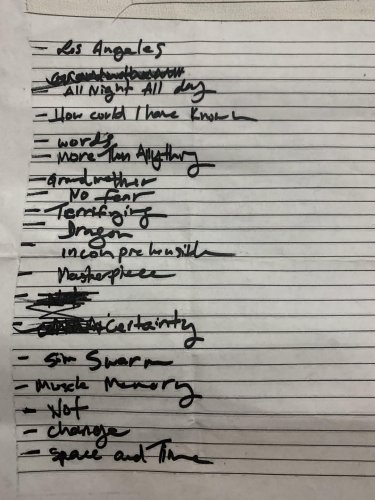 - Los Angeles
All Night All day
- How could I have known
- words
- More Than Anything
- Grandmother
- No fear
- Terrifying
- Dragon
incomprehensible
- Masterpiece
Certainty
- Sim Swarm
- Muscle Memory
- Not
- change
- space and Time